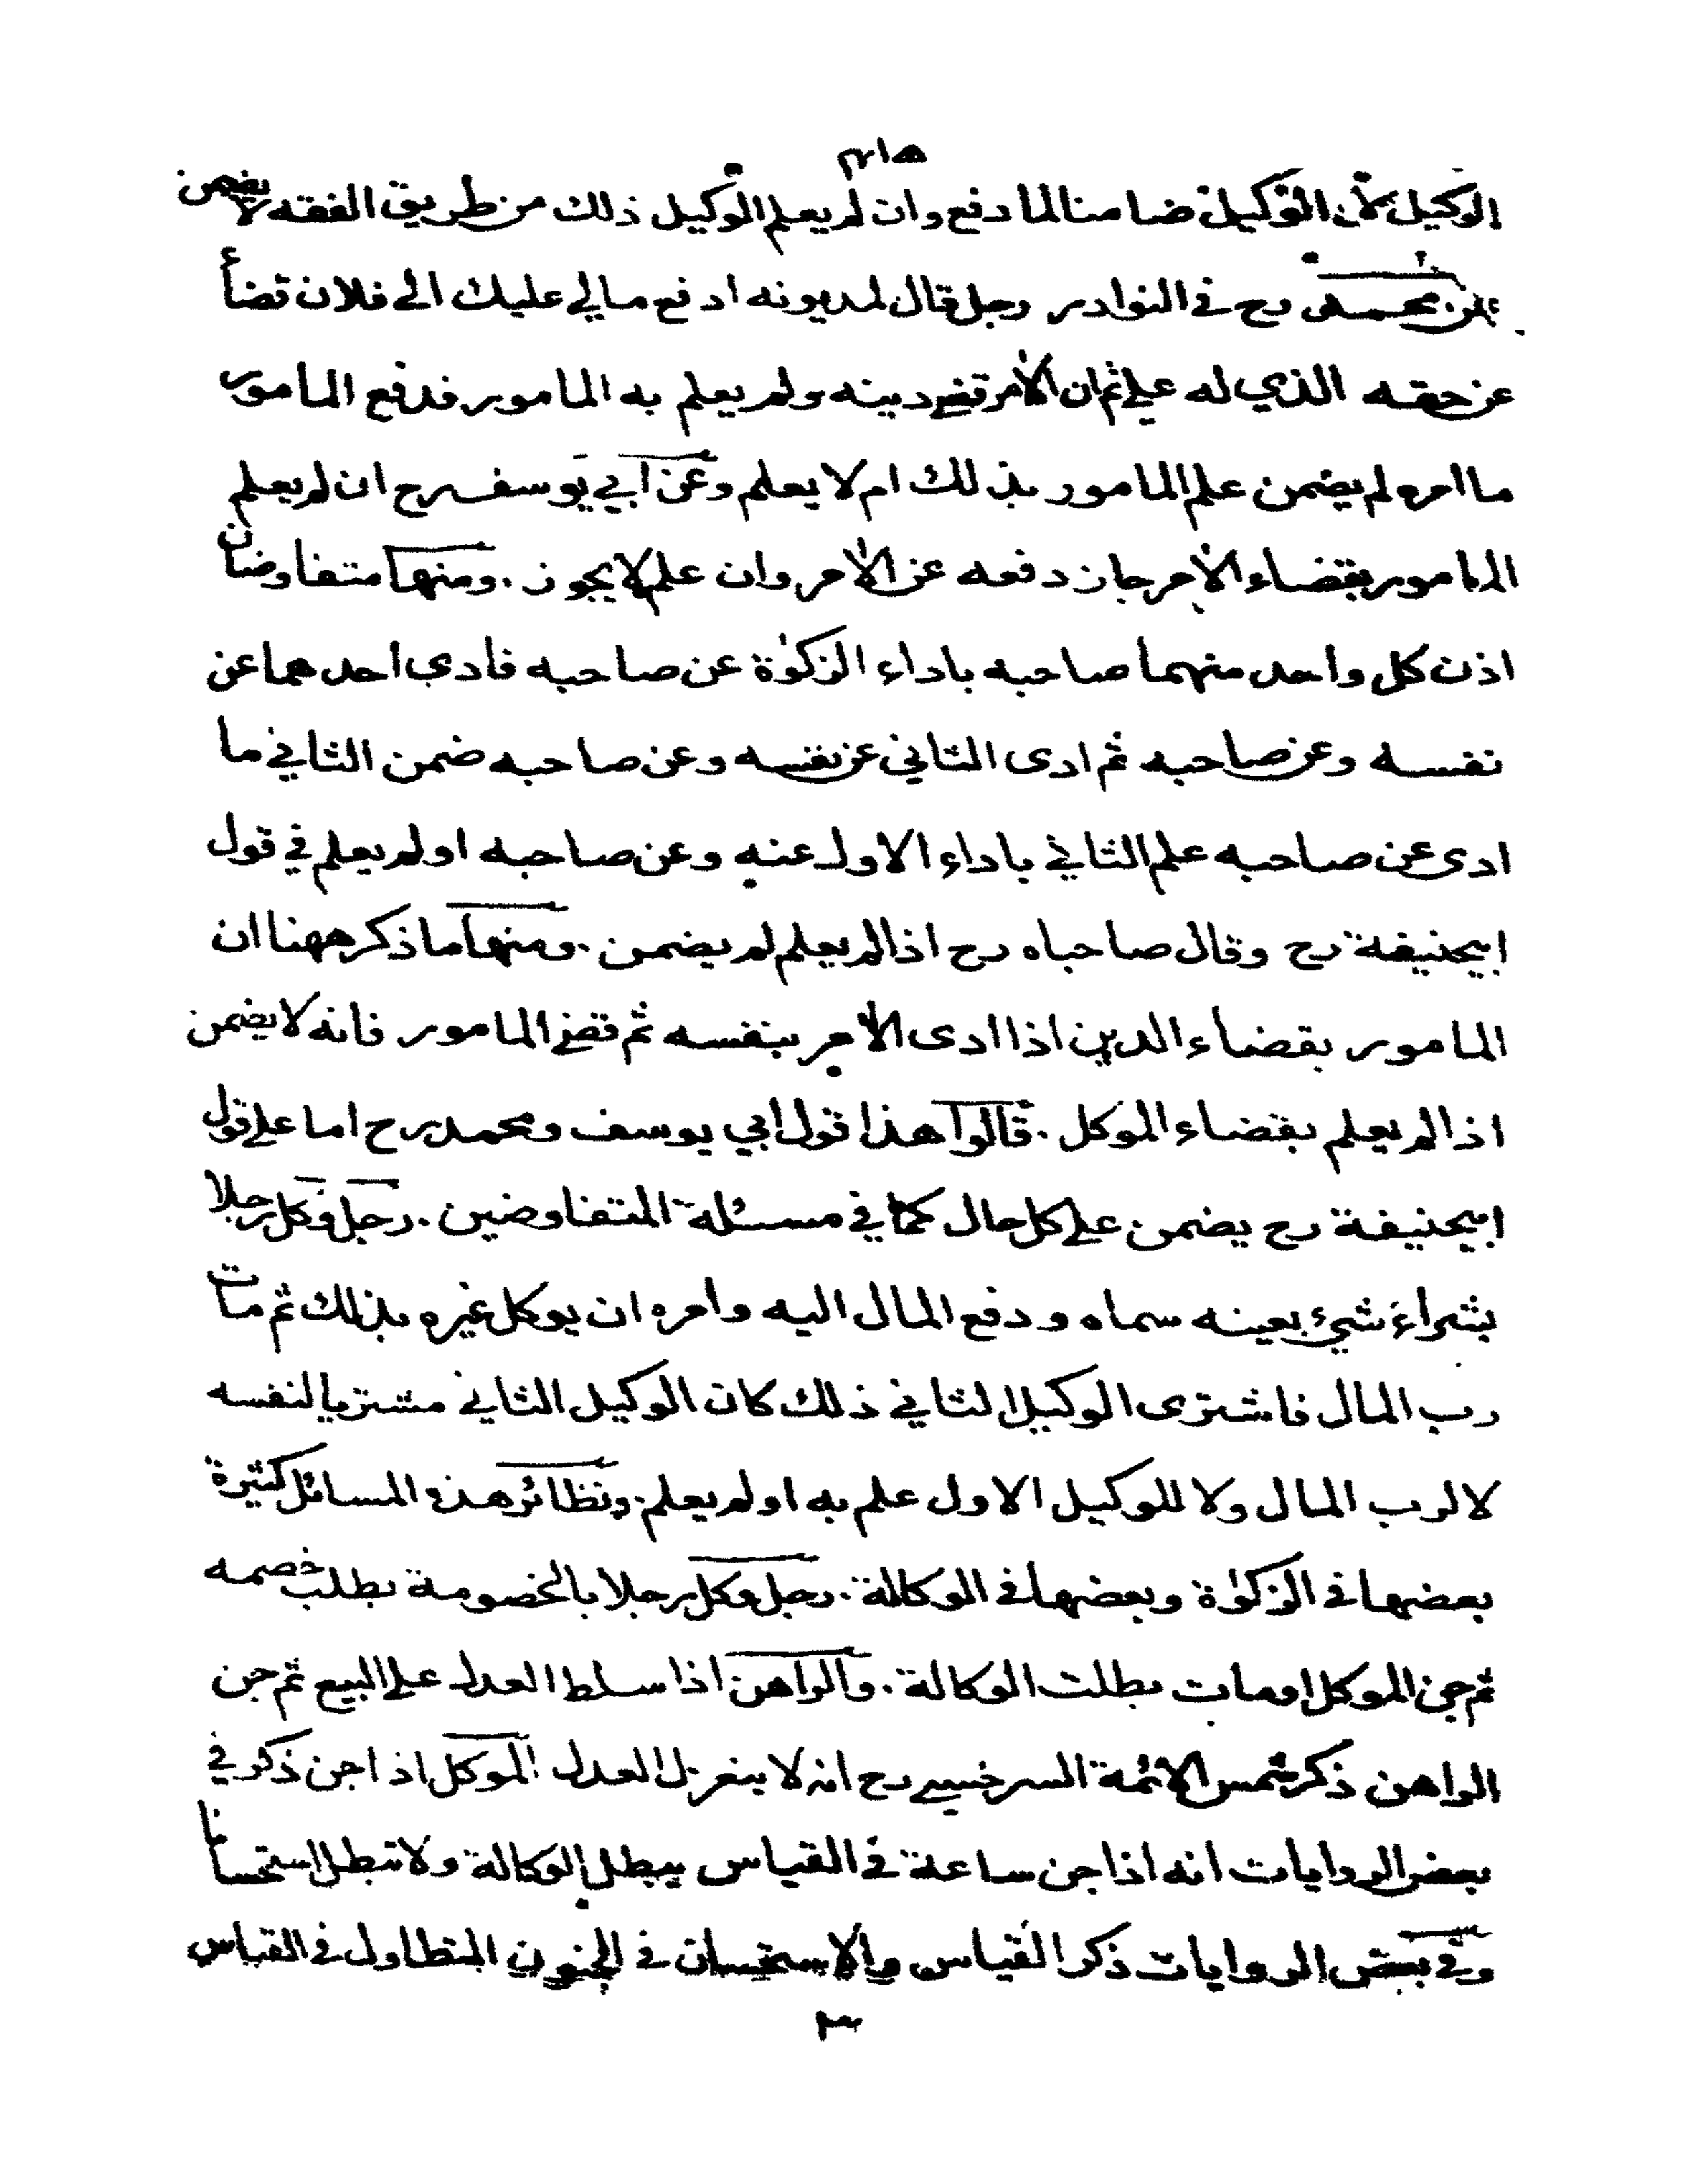 الوكيل كان الوكيل ضامنا لما دفع وان لم يعلم الوكيل ذلك من طريق الفقه لا يضمن
محمد رح في النوادر رجل قال لمديونه ادفع مالي عليك الى فلان قضأ
عن حقه الذي له علي ثم ان الآمر قضى دينه ولم يعلم به المامور فدفع المامور
ما امره لم يضمن علم المامور بذلك ام لا يعلم وعن ابي يوسف رح ان لم يعلم
المامور بقضاء الآمر جاز دفعه عن الآمر وان علم لا يجوز . ومنها متفاوضان
اذن كل واحد منهما صاحبه باداء الزكوٰة عن صاحبه فأدى احدهما عن
نفسه وعن صاحبه ثم ادى الثاني عن نفسه وعن صاحبه ضمن الثاني ما
ادى عن صاحبه علم الثاني باداء الاول عنه وعن صاحبه او لم يعلم في قول
ابيحنيفة رح وقال صاحباه رح اذا لم يعلم لم يضمن . ومنها ما ذكر ههنا ان
المامور بقضاء الدين اذا ادى الآمر بنفسه ثم قضى المامور فانه لا يضمن
اذا لم يعلم بقضاء الموكل . قالوا هذا قول ابي يوسف ومحمد رح اما على قول
ابيحنيفة رح يضمن على كل حال كما في مسئلة المتفاوضين . رجل وكل رجلا
بشراء شيء بعينه سماه ودفع المال اليه وامره ان يوكل غيره بذلك ثم مات
رب المال فاشترى الوكيل الثاني ذلك كان الوكيل الثاني مشتريا لنفسه
لا لرب المال ولا للوكيل الاول علم به او لم يعلم . ونظائر هذه المسائل كثيرة
بعضها في الزكوٰة وبعضها في الوكالة . رجل وكل رجلا بالخصومة بطلب خصمه
ثم جن الموكل او مات بطلت الوكالة . والراهن اذا سلط العدل على البيع ثم جن
الراهن ذكر شمس الائمة السرخسي رح انه لا ينعزل العدل الموكل اذا جن ذكر في
بعض الروايات انه اذا جن ساعة في القياس يبطل الوكالة ولا تبطل استحسانا
وفي بعض الروايات ذكر القياس والاستحسان في الجنون المتطاول في القياس